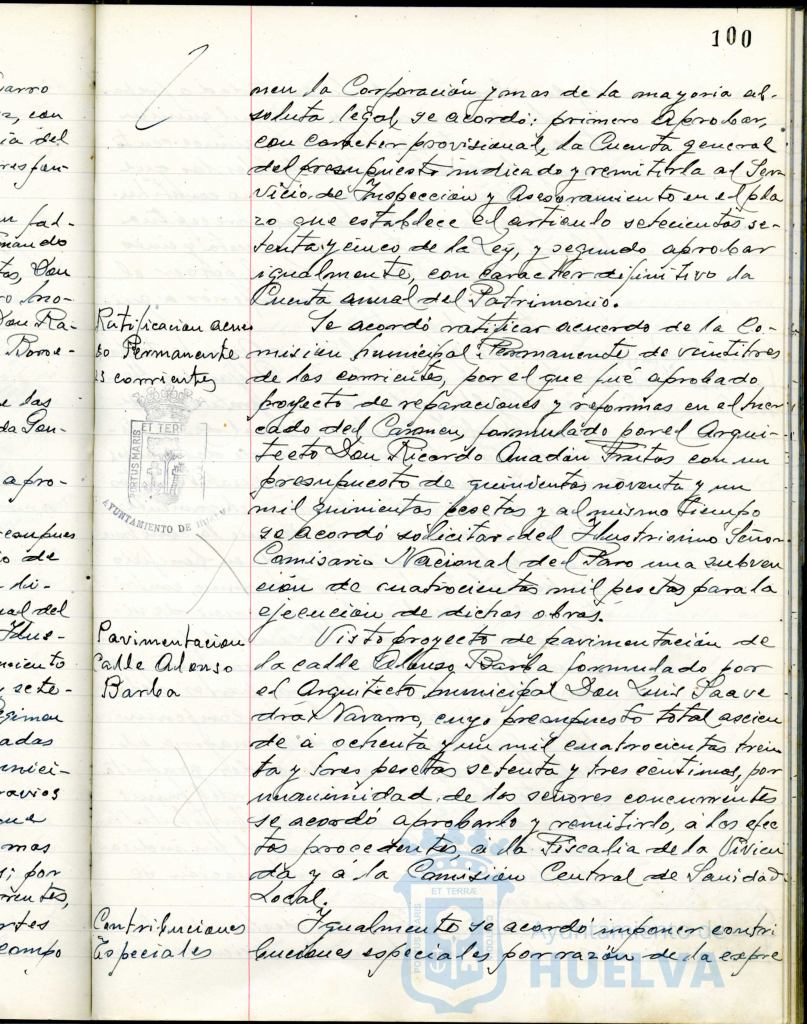 100
nen la Corporación y mas de la mayoria ab-
soluta legal, se acordó: primero aprobar,
con caracter provisional, la Cuenta general
del presupuesto indicado y remitirla al Ser-
vicio de Inspección y Asesoramiento en el pla
zo que establece el articulo setecientos se-
tenta y cinco de la Ley, y segundo aprobar
igualmente, con caracter difinitivo la
Cuenta anual del Patrimonio.
Ratificacion acuer
do Permanente
23 corrientes
Se acordó ratificar acuerdo de la Co-
misión municipal Permanente de veintitres
de los corrientes, por el que fué aprobado
proyecto de reparaciones y reformas en el mer-
cado del Carmen, formulado por el Arqui-
tecto Don Ricardo Anadón Frutos con un
presupuesto de quinientos noventa y un
mil quinientas pesetas y al mismo tiempo
se acordó solicitar del Ilustrisimo Señor
Comisario Nacional del Paro una subven
ción de cuatrocientas mil pesetas para la
ejecución de dichas obras.
PORTUS MARIS
ET TERR
AYUNTAMIENTO DE HUELVA
Pavimentacion
Calle Alonso
Barba
Visto proyecto de pavimentación de
la calle Alonso Barba formulado por
el Arquitecto municipal Don Luis Saave
dra Navarro, cuyo presupuesto total ascien
de á ochenta y un mil cuatrocientas trein
ta y tres pesetas setenta y tres centimos, por
unanimidad de los señores concurrentes
se acordó aprobarlo y remitirlo, á los efec
tos procedentes, á la Fiscalia de la Vivien
da y á la Comisión Central de Sanidad
Local.
Contribuciones
Especiales
Igualmente se acordó imponer contri
buciones especiales por razón de la expre
PORTUS MARIS
ET TERRÆ
CUSTODIA
Ayuntamiento de
HUELVA